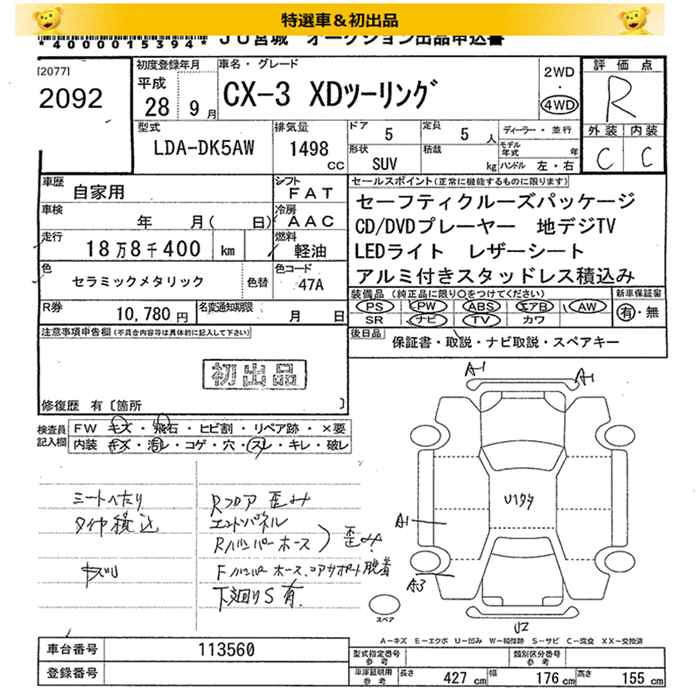 特選車＆初出品
*4000015394* JU宮城 オークション出品申込書
[2077]
2092
初度登録年月
平成
28 9月
車名・グレード
CX-3 XDツーリング
2WD
・
4WD
評価点
R
外装 内装
C C
型式
LDA-DK5AW
排気量
1498 CC
ドア 5
定員 5 人
形状 SUV
積載 kg
ディーラー・並行
モデル年式 年
ハンドル 左・右
車歴 自家用
シフト FAT
車検 年 月( 日)
冷房 AAC
走行 18万8千400 km
燃料 軽油
色 セラミックメタリック
色替
色コード 47A
R券 10,780円
名変通知期限 月 日
セールスポイント(正常に機能するものに限ります)
セーフティクルーズパッケージ
CD/DVDプレーヤー 地デジTV
LEDライト レザーシート
アルミ付きスタッドレス積込み
装備品 (純正品に限り○をつけてください)
新車保証書
PS PW ABS エアB AW
SR ナビ TV カワ
有・無
後日品
保証書・取説・ナビ取説・スペアキー
注意事項申告欄(不具合内容等は具体的に記入して下さい)
初出品
修復歴 有〔箇所 〕
検査員記入欄
FW キズ・飛石・ヒビ割・リペア跡・×要
内装 キズ・汚レ・コゲ・穴・スレ・キレ・破レ
シートへたり
タイヤ積込
キズU
Rフロア 歪み
エンドパネル
Rバンパーホース 歪み
Fバンパーホース、コアサポート脱着
下廻りS有
A1 A1
U19ケ
A1
A3
U2
スペア
A－キズ E－エクボ U－凹み W－補修跡 S－サビ C－腐食 XX－交換済
車台番号 113560
登録番号
型式指定番号 参考
類別区分番号 参考
車庫証明用 参考
長さ 427 cm
幅 176 cm
高さ 155 cm